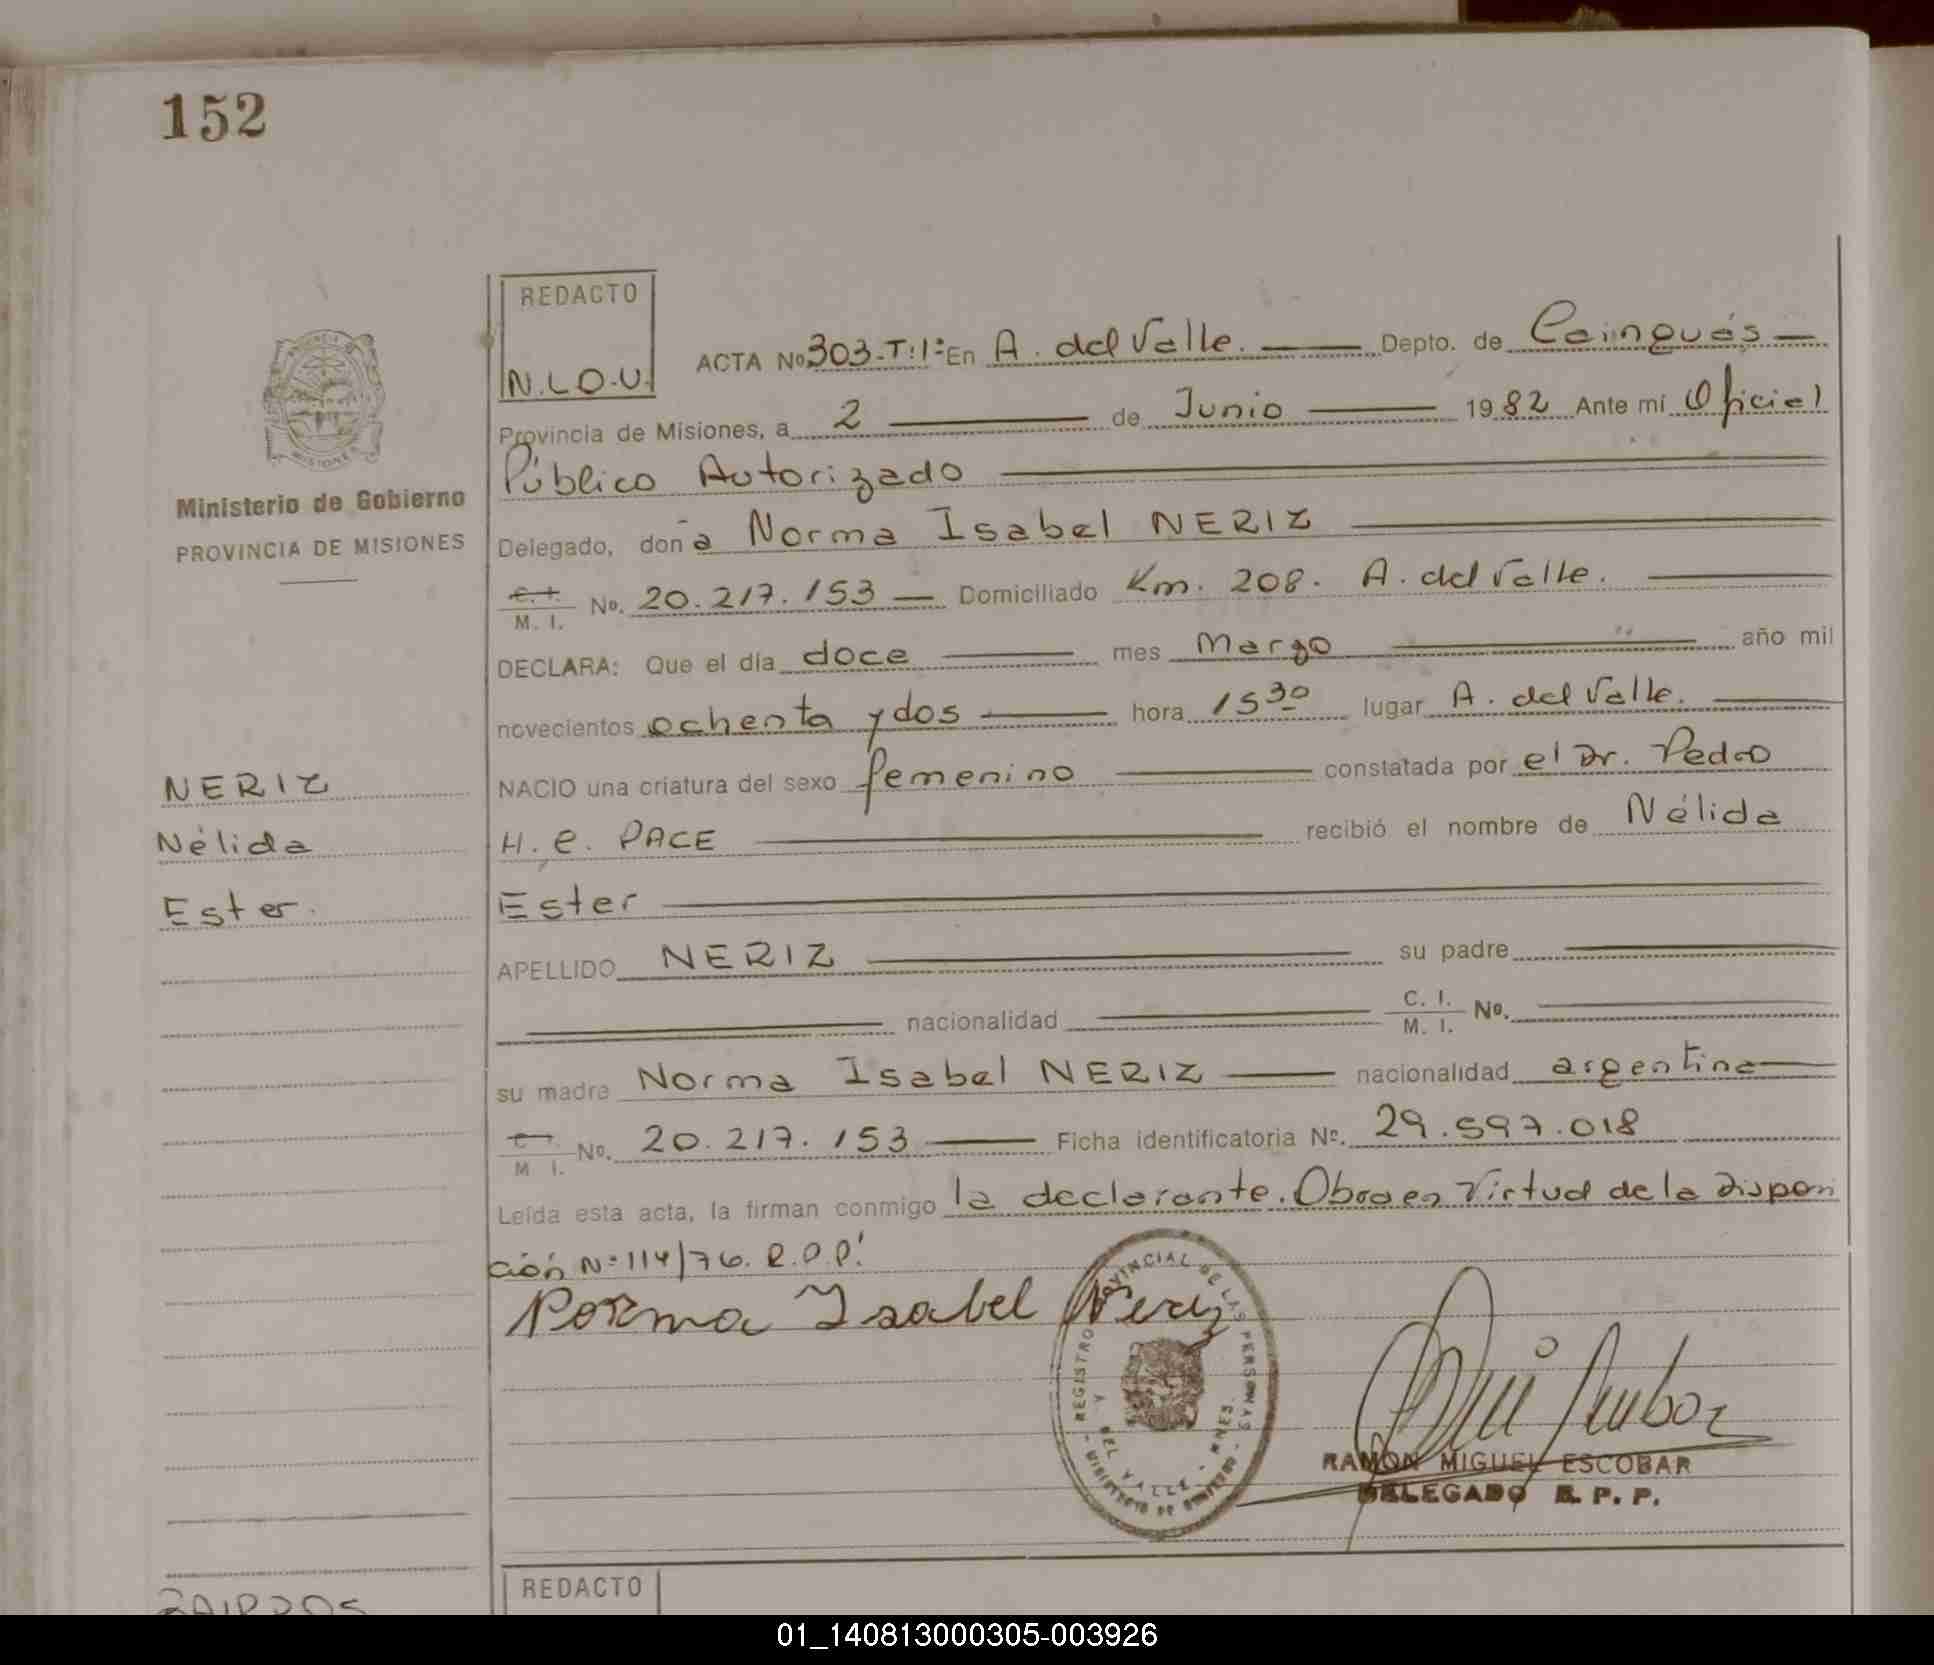 152
REDACTO
N.L.O.U.
ACTA No 303-T:1: En A. del Valle. Depto. de Cainguás
Provincia de Misiones, a 2 de Junio 1982 Ante mí Oficial
Público Autorizado
Ministerio de Gobierno
PROVINCIA DE MISIONES
MISIONES
Delegado, doña Norma Isabel NERIZ
C. I. M. I. No. 20.217.153 Domiciliado Km. 208. A. del Valle.
DECLARA: Que el día doce mes Marzo año mil
novecientos ochenta y dos hora 15 30 lugar A. del Valle.
NACIO una criatura del sexo femenino constatada por el Dr. Pedro
H. C. PACE recibió el nombre de Nélida
Ester
NERIZ
Nélida
Ester.
APELLIDO NERIZ su padre
nacionalidad C. I. M. I. No.
su madre Norma Isabel NERIZ nacionalidad argentina
M I. No. 20.217.153 Ficha identificatoria Nº. 29.597.018
Leída esta acta, la firman conmigo la declarante. Obra en Virtud de la Disposi
ción Nº 114/76. R.P.P.
Norma Isabel Neriz
REGISTRO PROVINCIAL DE LAS PERSONAS
DEL VALLE - MNES.
MINISTERIO DE GOBIERNO
RAMON MIGUEL ESCOBAR
DELEGADO R. P. P.
REDACTO
01_140813000305-003926